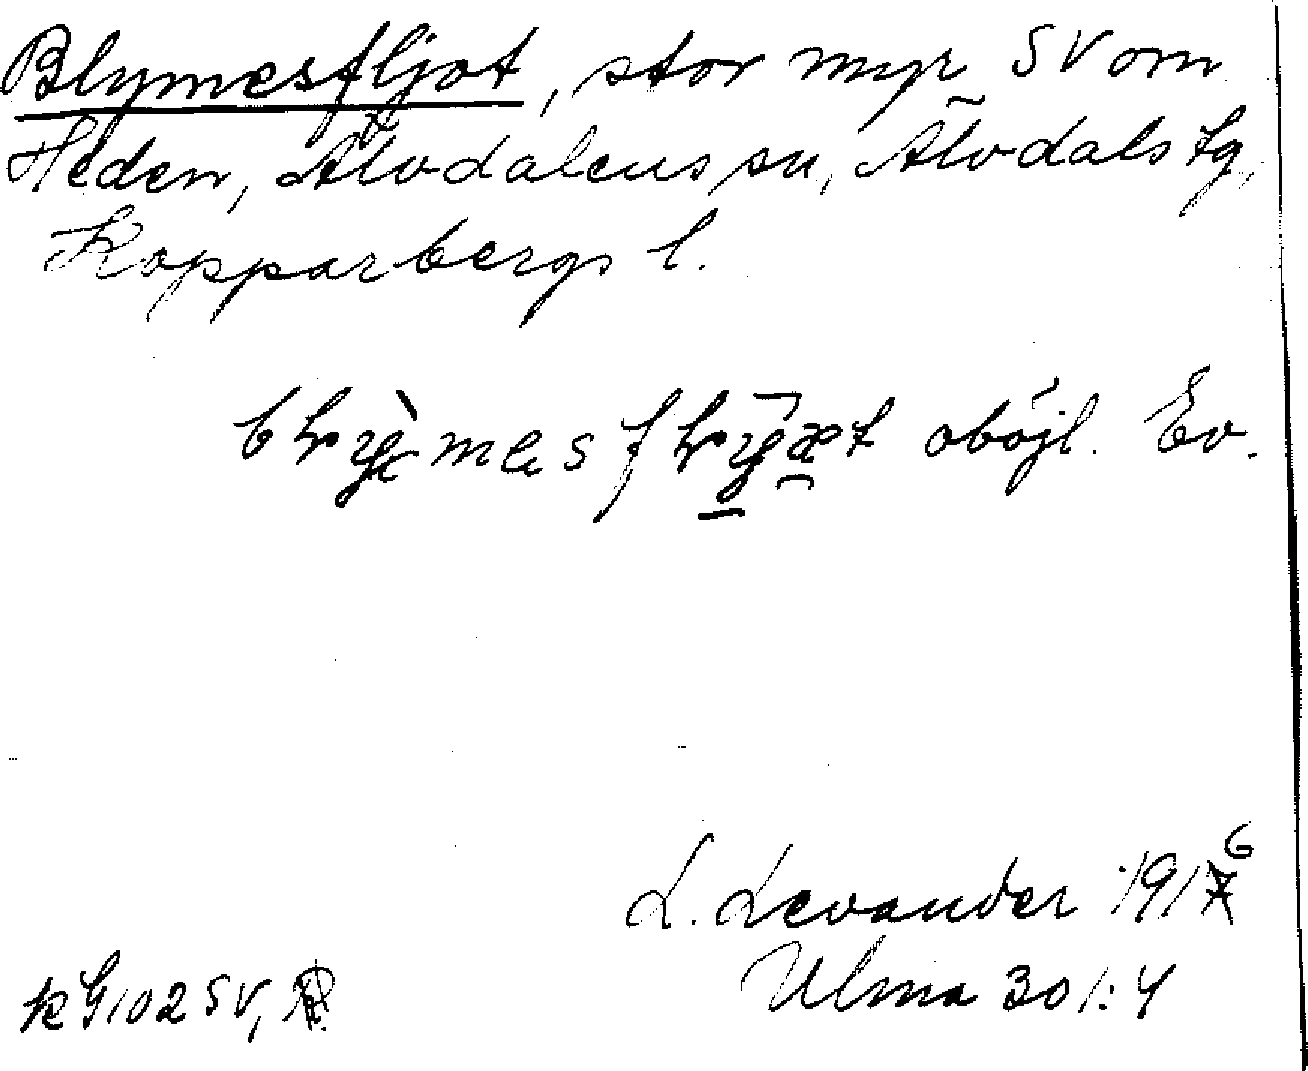 Blymesfljot, stor myr SV om
Heden, Älvdalens sn, Älvdals tg,
Kopparbergs l.
oböjl. Ev.
L. Levander 1916
Ulma 301:4
kG 102 SV,